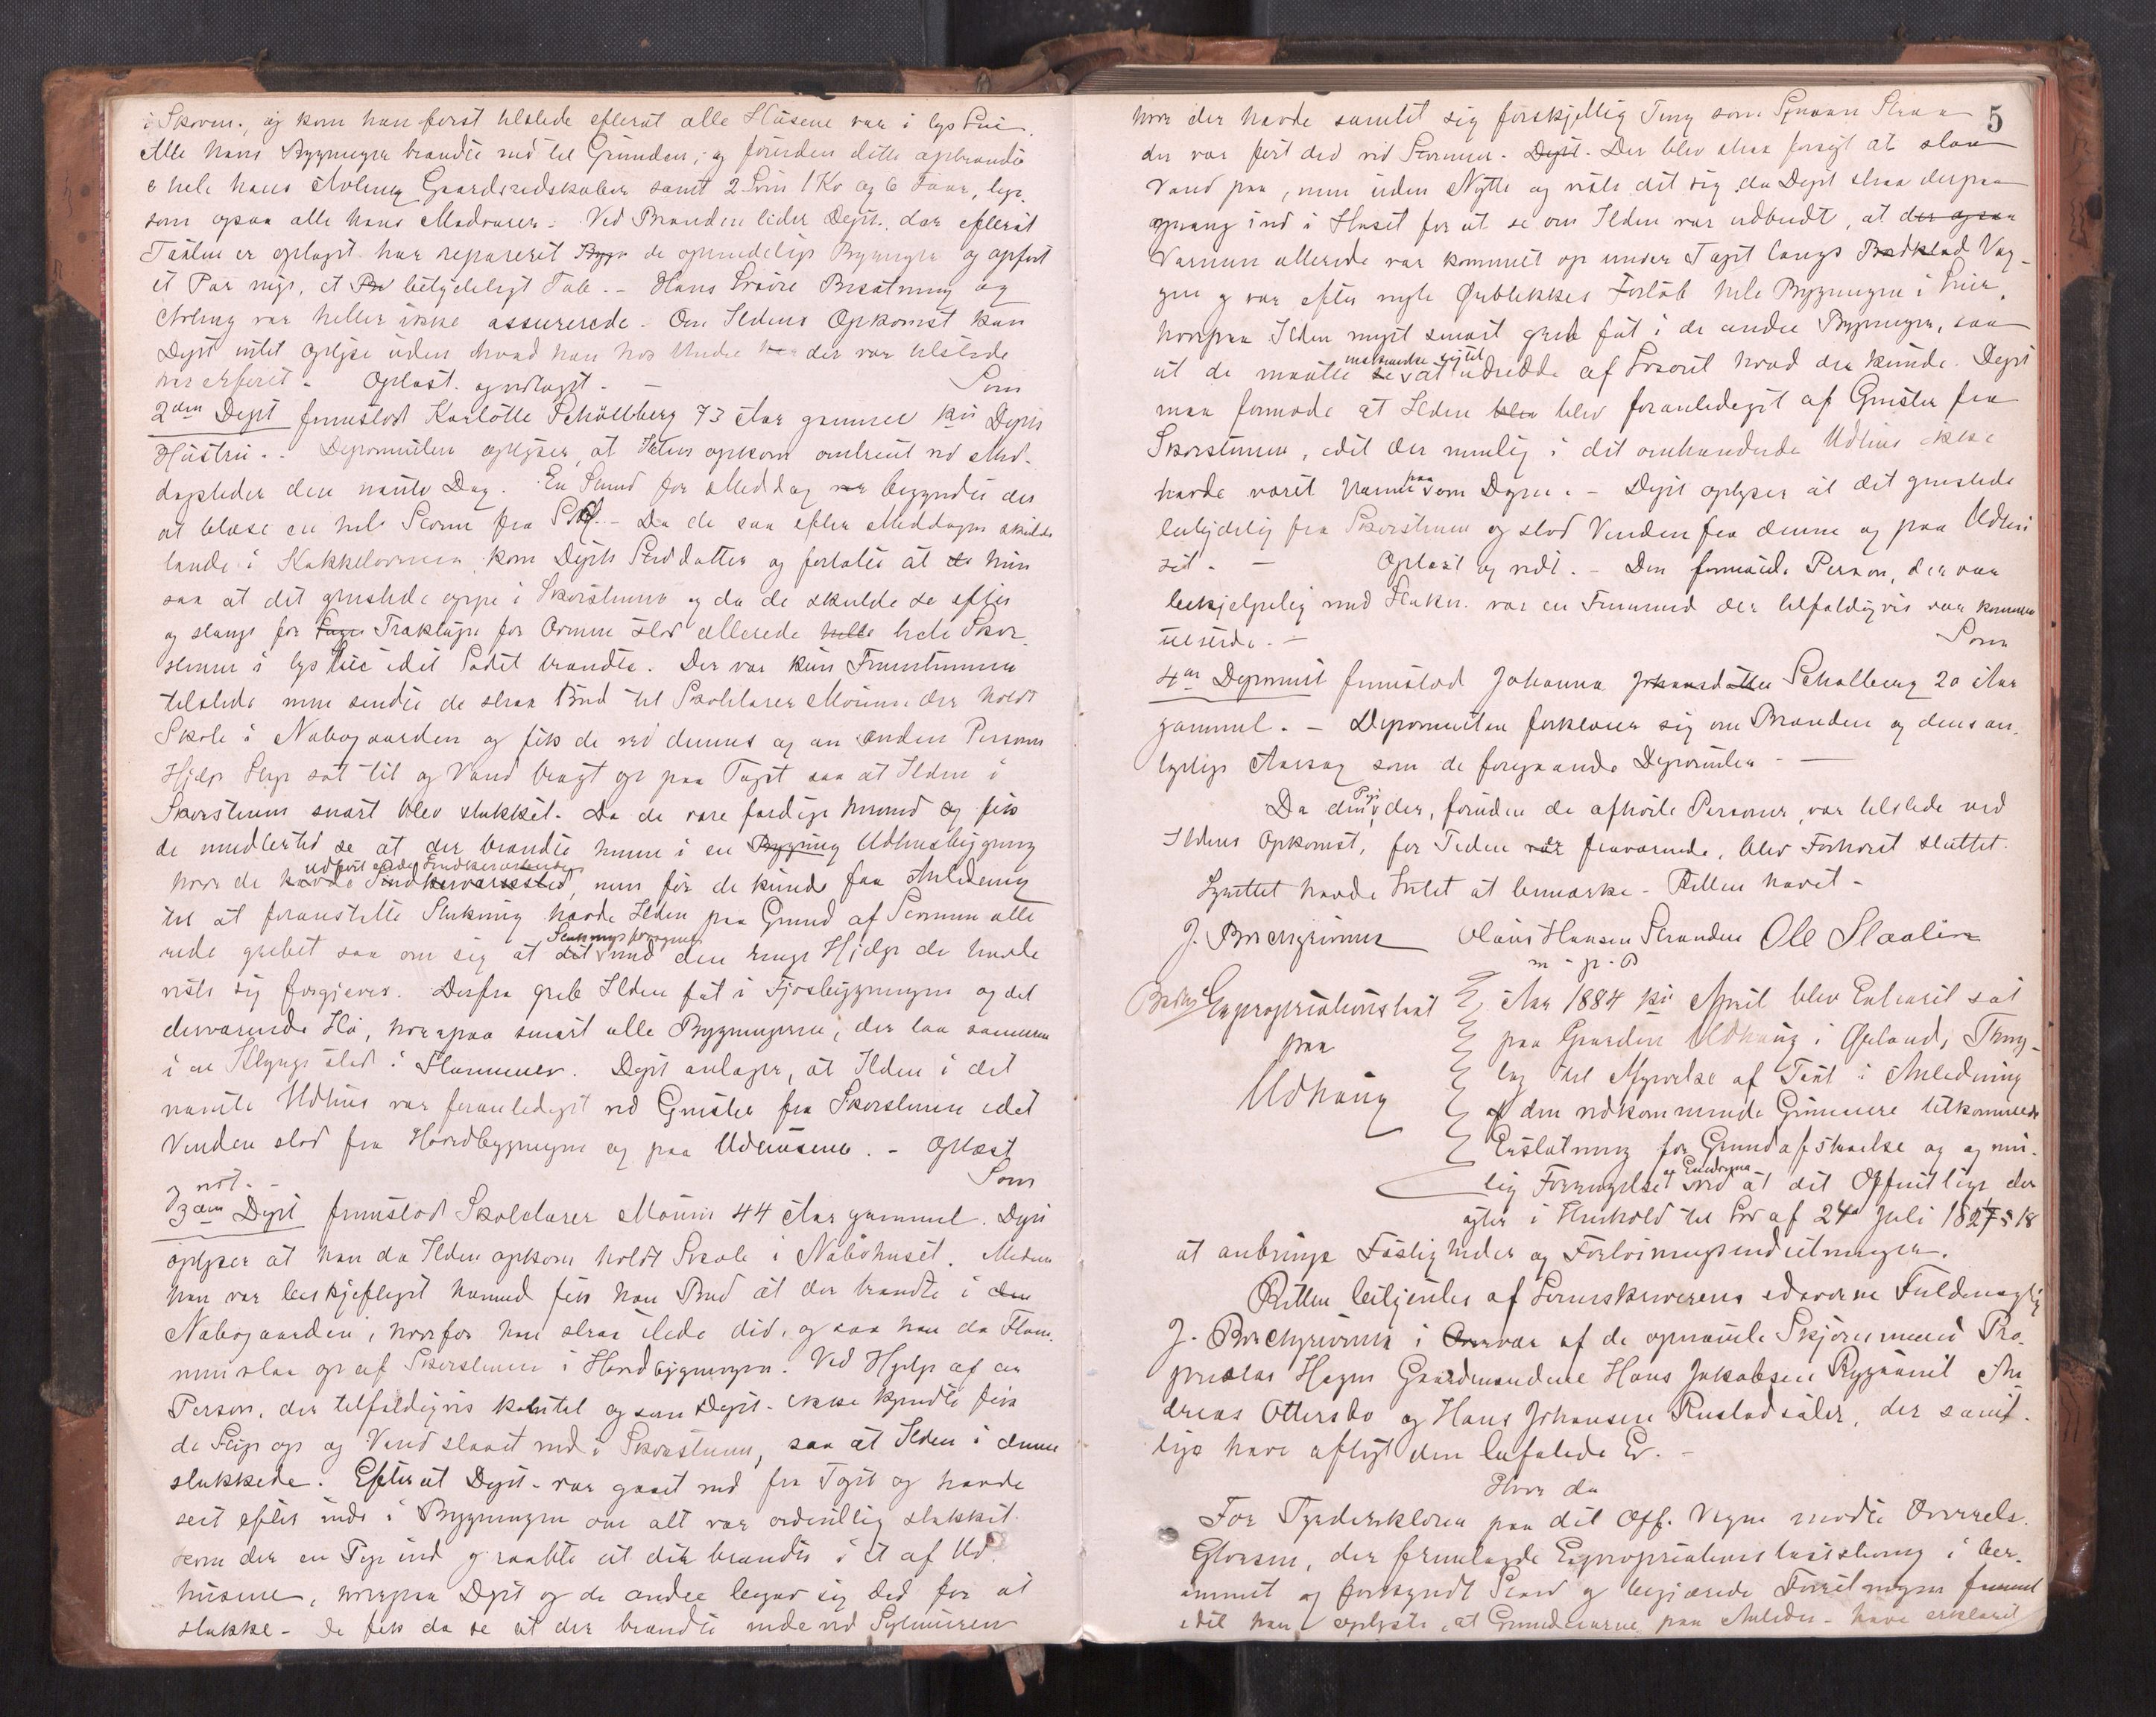 i Skoven., og kom han først tilstede efterat alle Husene var i lys Lue.
Alle hans Bygninger brændte ned til Grunden, og foruden dette opbrændte
hele hans Avling Gaardsredskaber samt 2 Sviin 1 Ko og 6 Faar, lige
som ogsaa alle hans Madvarer. Ved Branden lider Dept., der efterat
Taxten er optaget har repareret Bygn de oprindelige Bygninger og opført
et Par nye, et betydeligt Tab. - Hans Løsøre Besætning og
Avling var heller ikke assurerede. Om Ildens Opkomst kan
Dept intet oplyse uden hvad han hos Andre der var tilstede
har erfaret. Oplæst. og vedtaget. -
Som
2den Dept fremstod Karlotte Schølberg 73 Aar gammel Depts
Hustru. - Deponenten oplyser, at Ilden opkom omtrent ved Mid-
dagsleder den nævnte Dag. En Stund før Middag begyndte det
at blæse en hel Storm fra - Da de saa efter Middagen skulde
tænde i Kakkelovnen kom Depts Datter og fortalte at hun
saa at det gnistede oppe i Skorstenen og da de skulde se efter
og stænge for Trækrøret for Ovnen stod allerede hele Skor
stenen i lys Lue idet Sodet brændte. Der var kun Fruentimmer
tilstede men sendte de strax Bud til Skolelærer Moum der holdt
Skole i Nabogaarden og fik de ved dennes og en anden Persons
Hjelp Stige sat til og Vand bragt op paa Taget saa at Ilden i
Skorstenen snart blev slukket. Da de vare færdige hermed fik
de imidlertid se at der brændte henne i en Bygning Udhusbygning
hvor de havde udført Snedkerarbeide Snedkerværksted, men før de kunde faa Anledning
til at foranstalte Slukning havde Ilden paa Grund af Stormen alle
rede grebet saa om sig at det Slukningsforsøgene med den ringe Hjelp de havde
viste sig forgjæves. Derfra greb Ilden fat i Fjøsbygningen og det
derværende Hø, hvorpaa snart alle Bygningerne, der laa sammen
i en Klynge stod i Flammer. Dept antager, at Ilden i det
nævnte Udhus var foranlediget ved Gnister fra Skorstenen idet
Vinden stod fra Hovedbygningen og paa Udhusene. - Oplæst
og vedt. -
Som
3dm Dept fremstod Skolelærer Moum 44 Aar gammel. Dept
oplyser at han da Ilden opkom holdt Skole i Nabohuset. Medens
han var beskjeftiget hermed fik han Bud at der brændte i den
Nabogaarden, hvorfor han strax ilede did, og saa han da Flam.
men slaa op af Skorstenen i Hovedbygningen. Ved Hjelp af en
Person, der tilfældigvis kom til og som Dept. ikke kjendte fik
de Stige op og Vand slaaet ned i Skorstenen, saa at Ilden i denne
slukkede. Efterat Dept. var gaaet ned fra Taget og havde
seet efter inde i Bygningen om alt var ordentlig slukket
kom der en Pige ind og raabte at det brændte i et af Ud
husene, hvorpaa Dept og de andre begav sig did for at
slukke. De fik da se at der brændte nede ved

5
hvor der havde samlet sig forskjellig Ting som Spaan Straa
der var ført did ved Stormen. Dept. Der blev strax forsøgt at slaa
Vand paa, men uden Nytte og viste det sig da Dept strax derpaa
sprang ind i Huset for at se om Ilden var udbredt, at der ogsaa
Varmen allerede var kommet op under Taget langs Bordklæd Væg-
gen og var efter nogle Øieblikkes Forløb hele Bygningen i Lue,
hvorpaa Ilden meget snart greb fat i de andre Bygninger, saa
at de maatte indskrænke sig til at udredde af Løsøret hvad de kunde. Dept
maa formode at Ilden blev blev foranlediget af Gnister fra
Skorstenen, idet der nemlig i det omhandlede Udhus ikke
havde været Varme paa om Dagen. - Dept oplyser at det gnistede
betydelig fra Skorstenen og stod Vinden fra denne og paa Udhu
set. - Oplæst og vedt. - Den Person, der var
behjelpelig med Slukn. var en Fremmed der tilfældigvis var kommen
tilstede. -
Som
4de Deponent fremstod Johanna Johansdatter Schølberg 20 Aar
gammel. - Deponenten forklarer sig om Branden og dens an-
tagelige Aarsag som de foregaaende Deponenter - -
Da den Pige, der, foruden de afhørte Personer, var tilstede ved
Ildens Opkomst, for Tiden var fraværende, blev Forhøret sluttet.
Lagrettet havde Intet at bemærke - Retten hævet -
J. Borchgrevink Olaus Hansen Stranden Ole Slaalien
m - p - P
Beskr. Expropriationstaxt
paa
Udhaug
Aar 1884 April blev Extraret sat
paa Gaarden Udhaug i Ørland, Thing-
lag til Afgivelse af Taxt i Anledning
af den vedkommende Grundeiere tilkommende
Erstatning for Grundafstaaelse og mu-
lig Forringelse af Eiendommen ved at det Offentlige der
agter i Henhold til Lov af 24de Juli 1827 § 18
at anbringe Fæstigheder og Fortøiningsindretninger.
Retten betjentes af Sorenskriverens edsvorne Fuldmægtig
J. Borchgrevink i Overvær af de opnævnte Skjønsmænd Pro.
prietær Hagen Gaardmændene Hans Jakobsen Ryggamel An
dreas Ottersbo og Hans Johansen Rustadsæter, der samt-
lige have aflagt den befalede Ed. -
Hvor da
For Fyrdirektøren paa det Off. Vegne mødte Overrets.
der fremlagde Expropriationsbesikelsen i ber.
ammet og forkyndt Stand og begjærede Forretningen fremmet
idet han oplyste, at Grundeierne paa Anledn - have erklæret